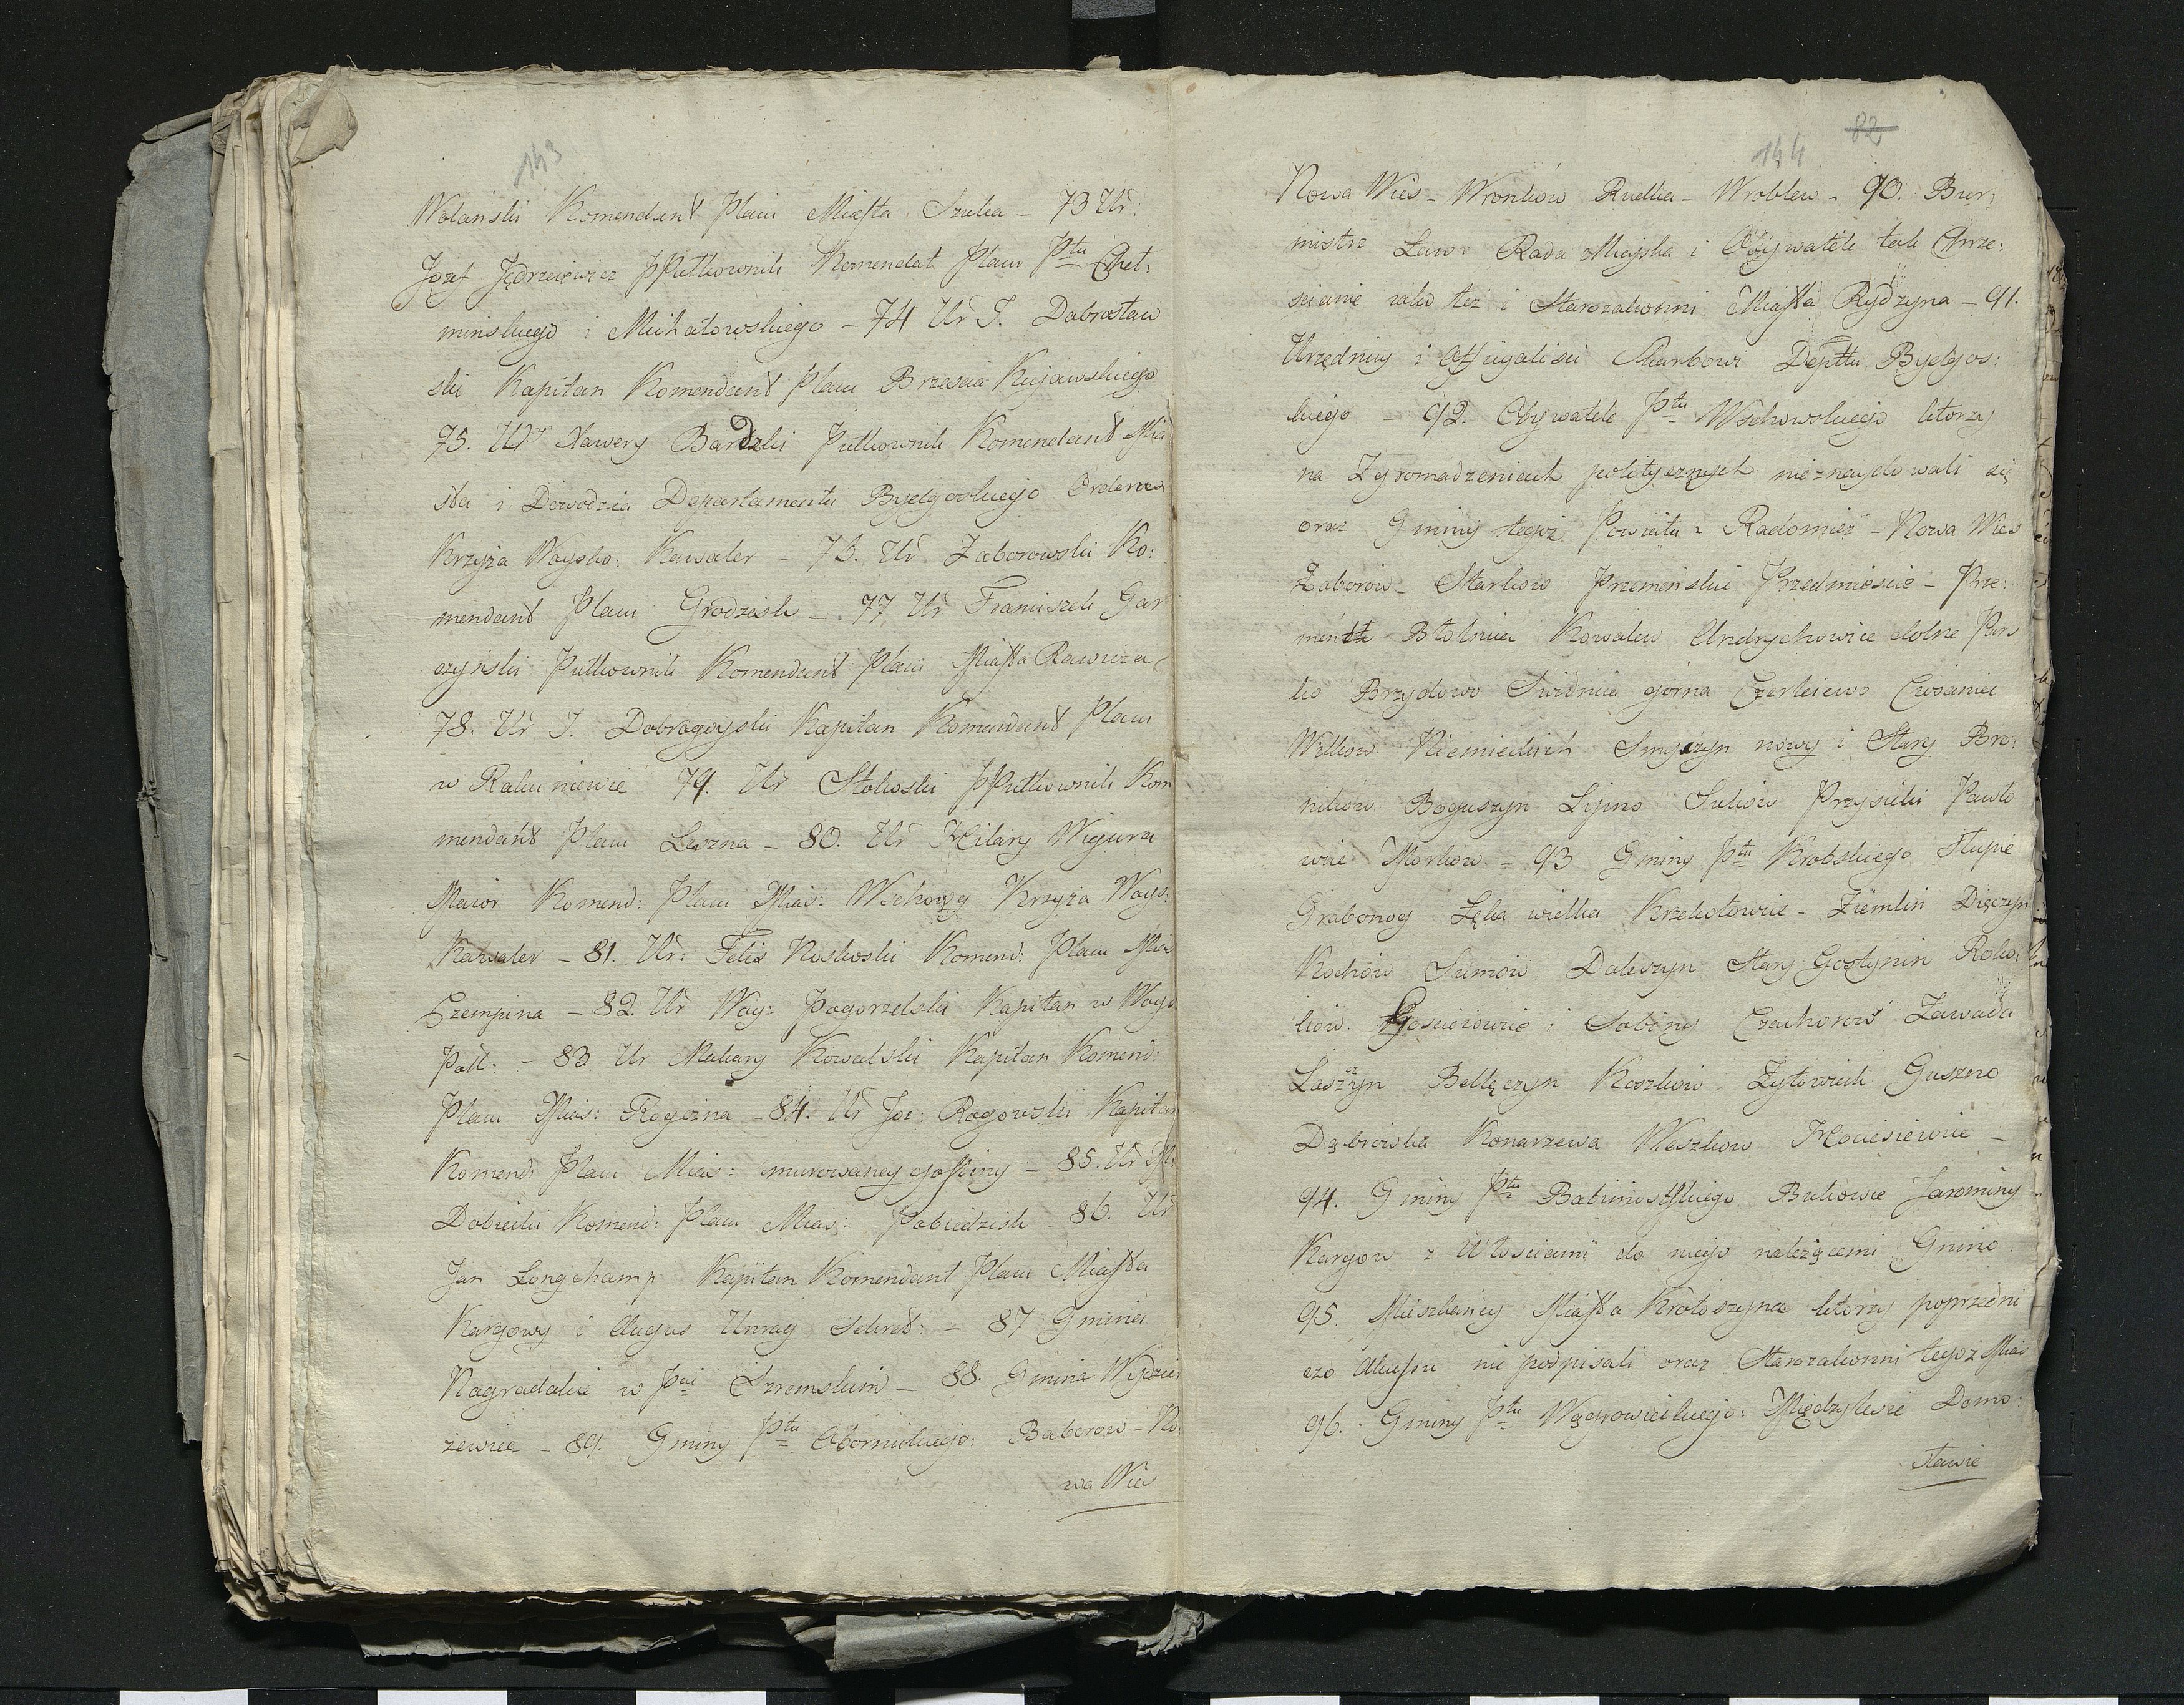 143
Wolański Komendant Placu Miasta Szulca – 73 Ur:
Jozef Jędrzeiewicz PPułkownik Komendat Placu Ptu Cheł:
minskiego i Michałowskiego – 74 Ur J. Dobrosław
ski Kapitan Komendant Placu Brzescia Kujawskiego
75. Ur Xawery Bardzki Pułkownik Komendant Mia
sta i Dowodzca Departamentu Bydgoskiego Orderu
Krzyża Woysko: Kawaler – 76. Ur Zaborowski Ko:
mendant Placu Grodzisk – 77 Ur Franciszek Gar
czyński Pułkownik Komendant Placu Miasta Rawicza –
78. Ur J. Dobrogoyski Kapitan Komendant Placu
w Rakuniewie 79. Ur Stokoski PPułkownik Kom
mendant Placu Leszna – 80. Ur Hilary Wigura
Maior Komend: Placu Mias: Wschowy Krzyża Woys:
Kawaler – 81. Ur: Felix Koskoski Komend: Placu Mia
Czempina – 82. Ur Woy: Pogorzelski Kapitan w Woys
Poll: – 83. Ur Makary Kowalski Kapitan Komend:
Placu Mias: Rogozna – 84. Ur Joz: Rogowski Kapitan
Komend: Placu Mias: murowaney gosliny – 85. Ur
Dobiecki Komend: Placu Mias: Pobiedzisk – 86. Ur
Jan Longchamp Kapitan Komendant Placu Miasta
Kargowy i Augus Unrug Sekret: – 87 Gmina
Nagradowice w Pcie Szremskim – 88. Gmina Wydzie
żewice – 89. Gminy Ptu Obornickiego: Baborow – No
wa Wies
82
144
Nowa Wies – Wronkow Rudka – Wroblew – 90. Bur:
mistrz Ławr Rada Mieyska i Obywatele tak Chrze:
scianie iako też i Starozakonni Miasta Rydzyna – 91.
Urzędnicy i Officyalisci Skarbowi Depttu Bydgos:
kiego – 92. Obywatele Ptu Wschowskiego ktorzy
na Zgromadzeniach politycznych nieznaydowali się
oraz Gminy tegoż Powiatu: Radomicz – Nowa Wies
Zaborow – Starkowo Przemeńskie Przedmiescie – Prze:
ment Błotnica Kowalew Andrychowice dolne Pur
ko Brzydowo Swidnica gorna Czerleiewo
Wilkow Niemiecki Smyczyn nowy i Stary Bro:
nikow Boguszyn Lipno Sulkow Przysieki Pawło
wice Morkow – 93 Gminy Ptu Krobskiego Słupie
Grabonog Łęka wielka Krzekotowice – Ziemlin Dzięczyn
Kochow Sumow Daleszyn Stary Gostynin Roko:
kow. Goscieiewice i Sobiny Czachorow Zawada
Łaszczyn Bełęczyn Koszkow Zytowieck Guszno
Dąbrowka Konarzewa Weszkow Hociesiewice –
94. Gminy Ptu Babimostskiego Bukowie Jaromiry
Kargow z Włosciami do niego należącemi Gmino
95. Mieszkańcy Miasta Krotoszyna ktorzy poprzedni
czo Akcessu nie podpisali oraz Starozakonni tegoż Mias
96. Gminy Ptu Wągrowieckiego: Międzylesie Domo:
sławie